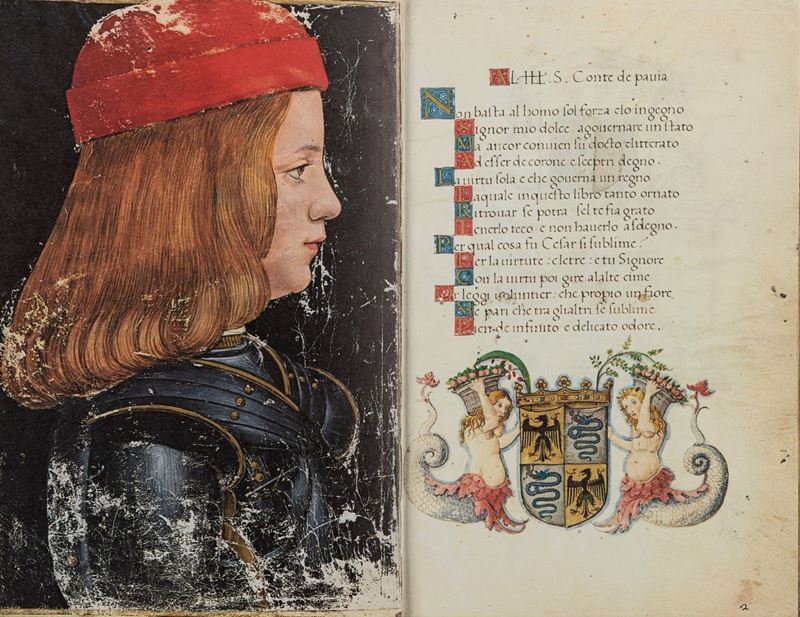 AL III. S. Conte de pauia
Non basta al homo sol forza elo ingegno
Signor mio dolce, agouernare un stato
Ma ancor conuien su docto elitterato
Ad esser de corone e sceptri degno.
La uirtu sola e che gouerna un regno
Laquale inquesto libro tanto ornato
Ritrouar se potra sel te fia grato
Tenerlo teco e non hauerlo asdegno.
Per qual cosa fu Cesar si sublime?
Per la uirtute: eletre: e tu Signore
Con la uirtu poi gire alalte cime
Per leggi uoluntier: che propio un fiore
Me pari che tra glialtri se sublime
Pien de infinito e delicato odore.
2